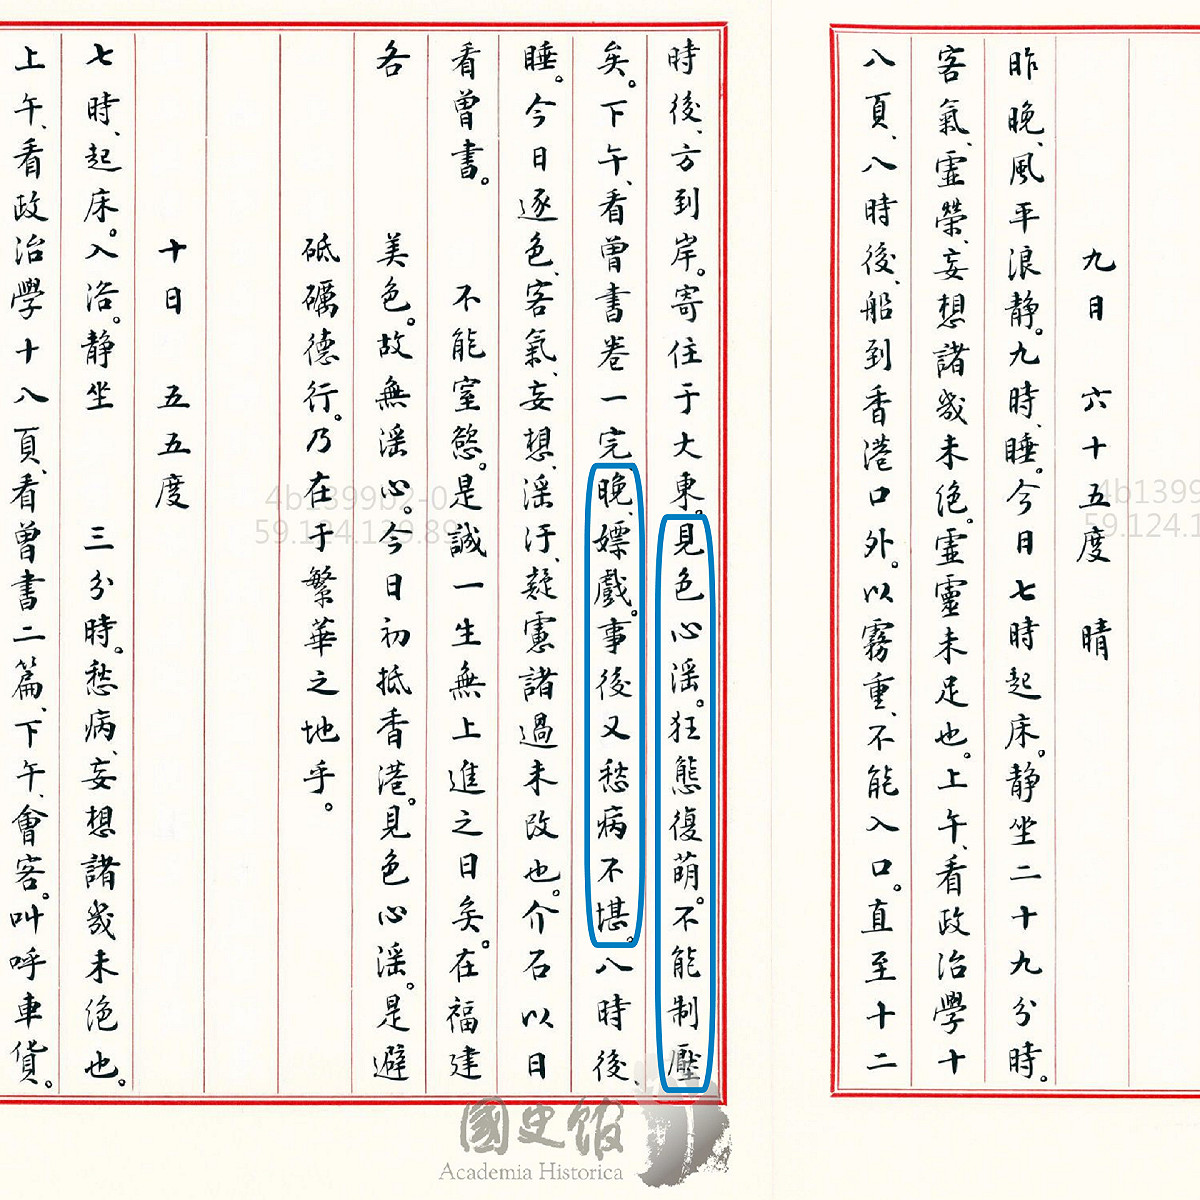 九日　六十五度　晴
昨晚、風平浪静。九時、睡。今日七時起床。静坐二十九分時。
客氣、虛榮、妄想諸幾未絕。虛靈未足也。上午、看政治學十
八頁、八時後、船到香港口外。以霧重、不能入口。直至十二
時後、方到岸。寄住于大東。見色心淫。狂態復萌。不能制壓
矣。下午、看曾書卷一完、晚、嫖戲。事後又愁病不堪。八時後、
睡。今日逐色、客氣、妄想、淫汙、疑慮諸過未改也。介石以日
看曾書。　　不能窒慾。是誠一生無上進之日矣。在福建
各　　　美色。故無淫心。今日初抵香港。見色心淫。是避
砥礪德行。乃在于繁華之地乎。
十日　五五度
七時、起床。入浴。静坐　　三分時。愁病、妄想諸幾未絕也。
上午、看政治學十八頁、看曾書二篇、下午、會客。叫呼車貨。
4b1399b2-0
59.124.139.89
4b1399
59.124.1
國史館
Academia Historica